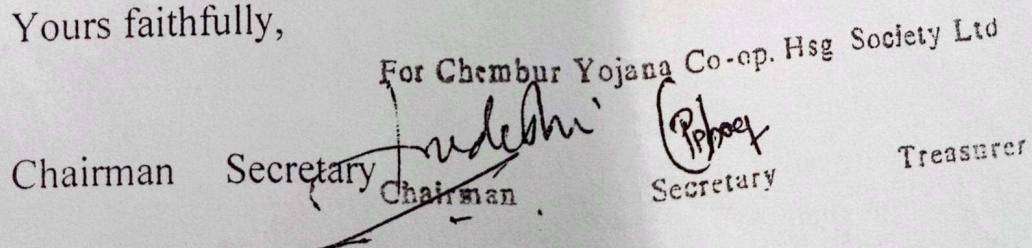 Yours faithfully,
For Chembur Yojana Co-op. Hsg Society Ltd
Chairman Secretary
Chairman Secretary Treasurer